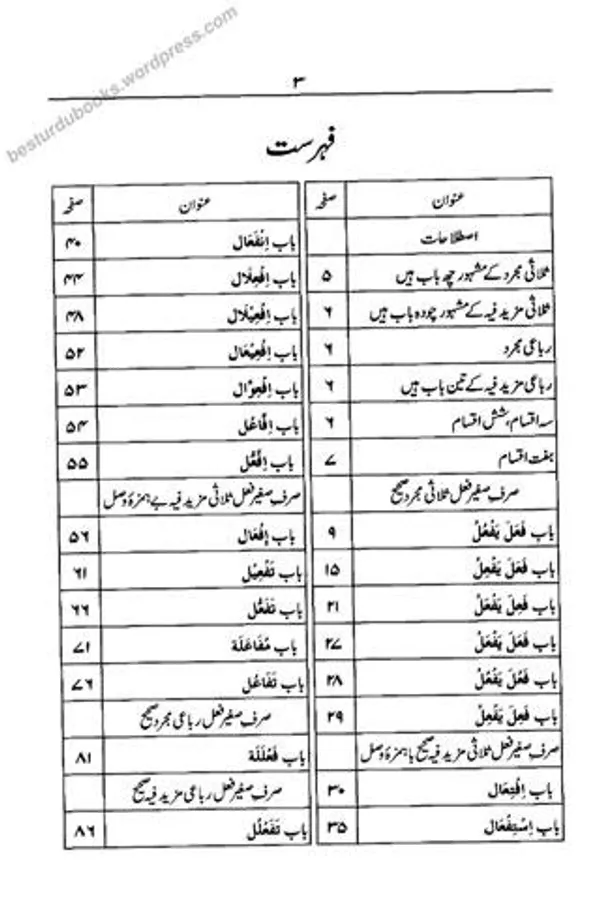 besturdubooks.wordpress.com
۳
فہرست
عنوان صفحہ
اصطلاحات
ثلاثی مجرد کے مشہور چھ باب ہیں ۵
ثلاثی مزید فیہ کے مشہور چودہ باب ہیں ۶
رباعی مجرد ۶
رباعی مزید فیہ کے تین باب ہیں ۶
سہ اقسام، شش اقسام ۶
ہفت اقسام ۷
صرف صغیر فعل ثلاثی مجرد صحیح
باب فَعَلَ یَفْعُلُ ۹
باب فَعَلَ یَفْعِلُ ۱۵
باب فَعِلَ یَفْعَلُ ۲۱
باب فَعَلَ یَفْعَلُ ۲۷
باب فَعُلَ یَفْعُلُ ۲۸
باب فَعِلَ یَفْعِلُ ۲۹
صرف صغیر فعل ثلاثی مزید فیہ صحیح با ہمزۂ وصل
باب اِفْتِعَال ۳۰
باب اِسْتِفْعَال ۳۵
عنوان صفحہ
باب اِنْفِعَال ۴۰
باب اِفْعِلَال ۴۴
باب اِفْعِیْلَال ۴۸
باب اِفْعِیْعَال ۵۲
باب اِفْعِوَّال ۵۳
باب اِفَّاعُل ۵۴
باب اِفَّعُّل ۵۵
صرف صغیر فعل ثلاثی مزید فیہ بے ہمزۂ وصل
باب اِفْعَال ۵۶
باب تَفْعِیْل ۶۱
باب تَفَعُّل ۶۶
باب مُفَاعَلَة ۷۱
باب تَفَاعُل ۷۶
صرف صغیر فعل رباعی مجرد صحیح
باب فَعْلَلَة ۸۱
صرف صغیر فعل رباعی مزید فیہ صحیح
باب تَفَعْلُل ۸۶